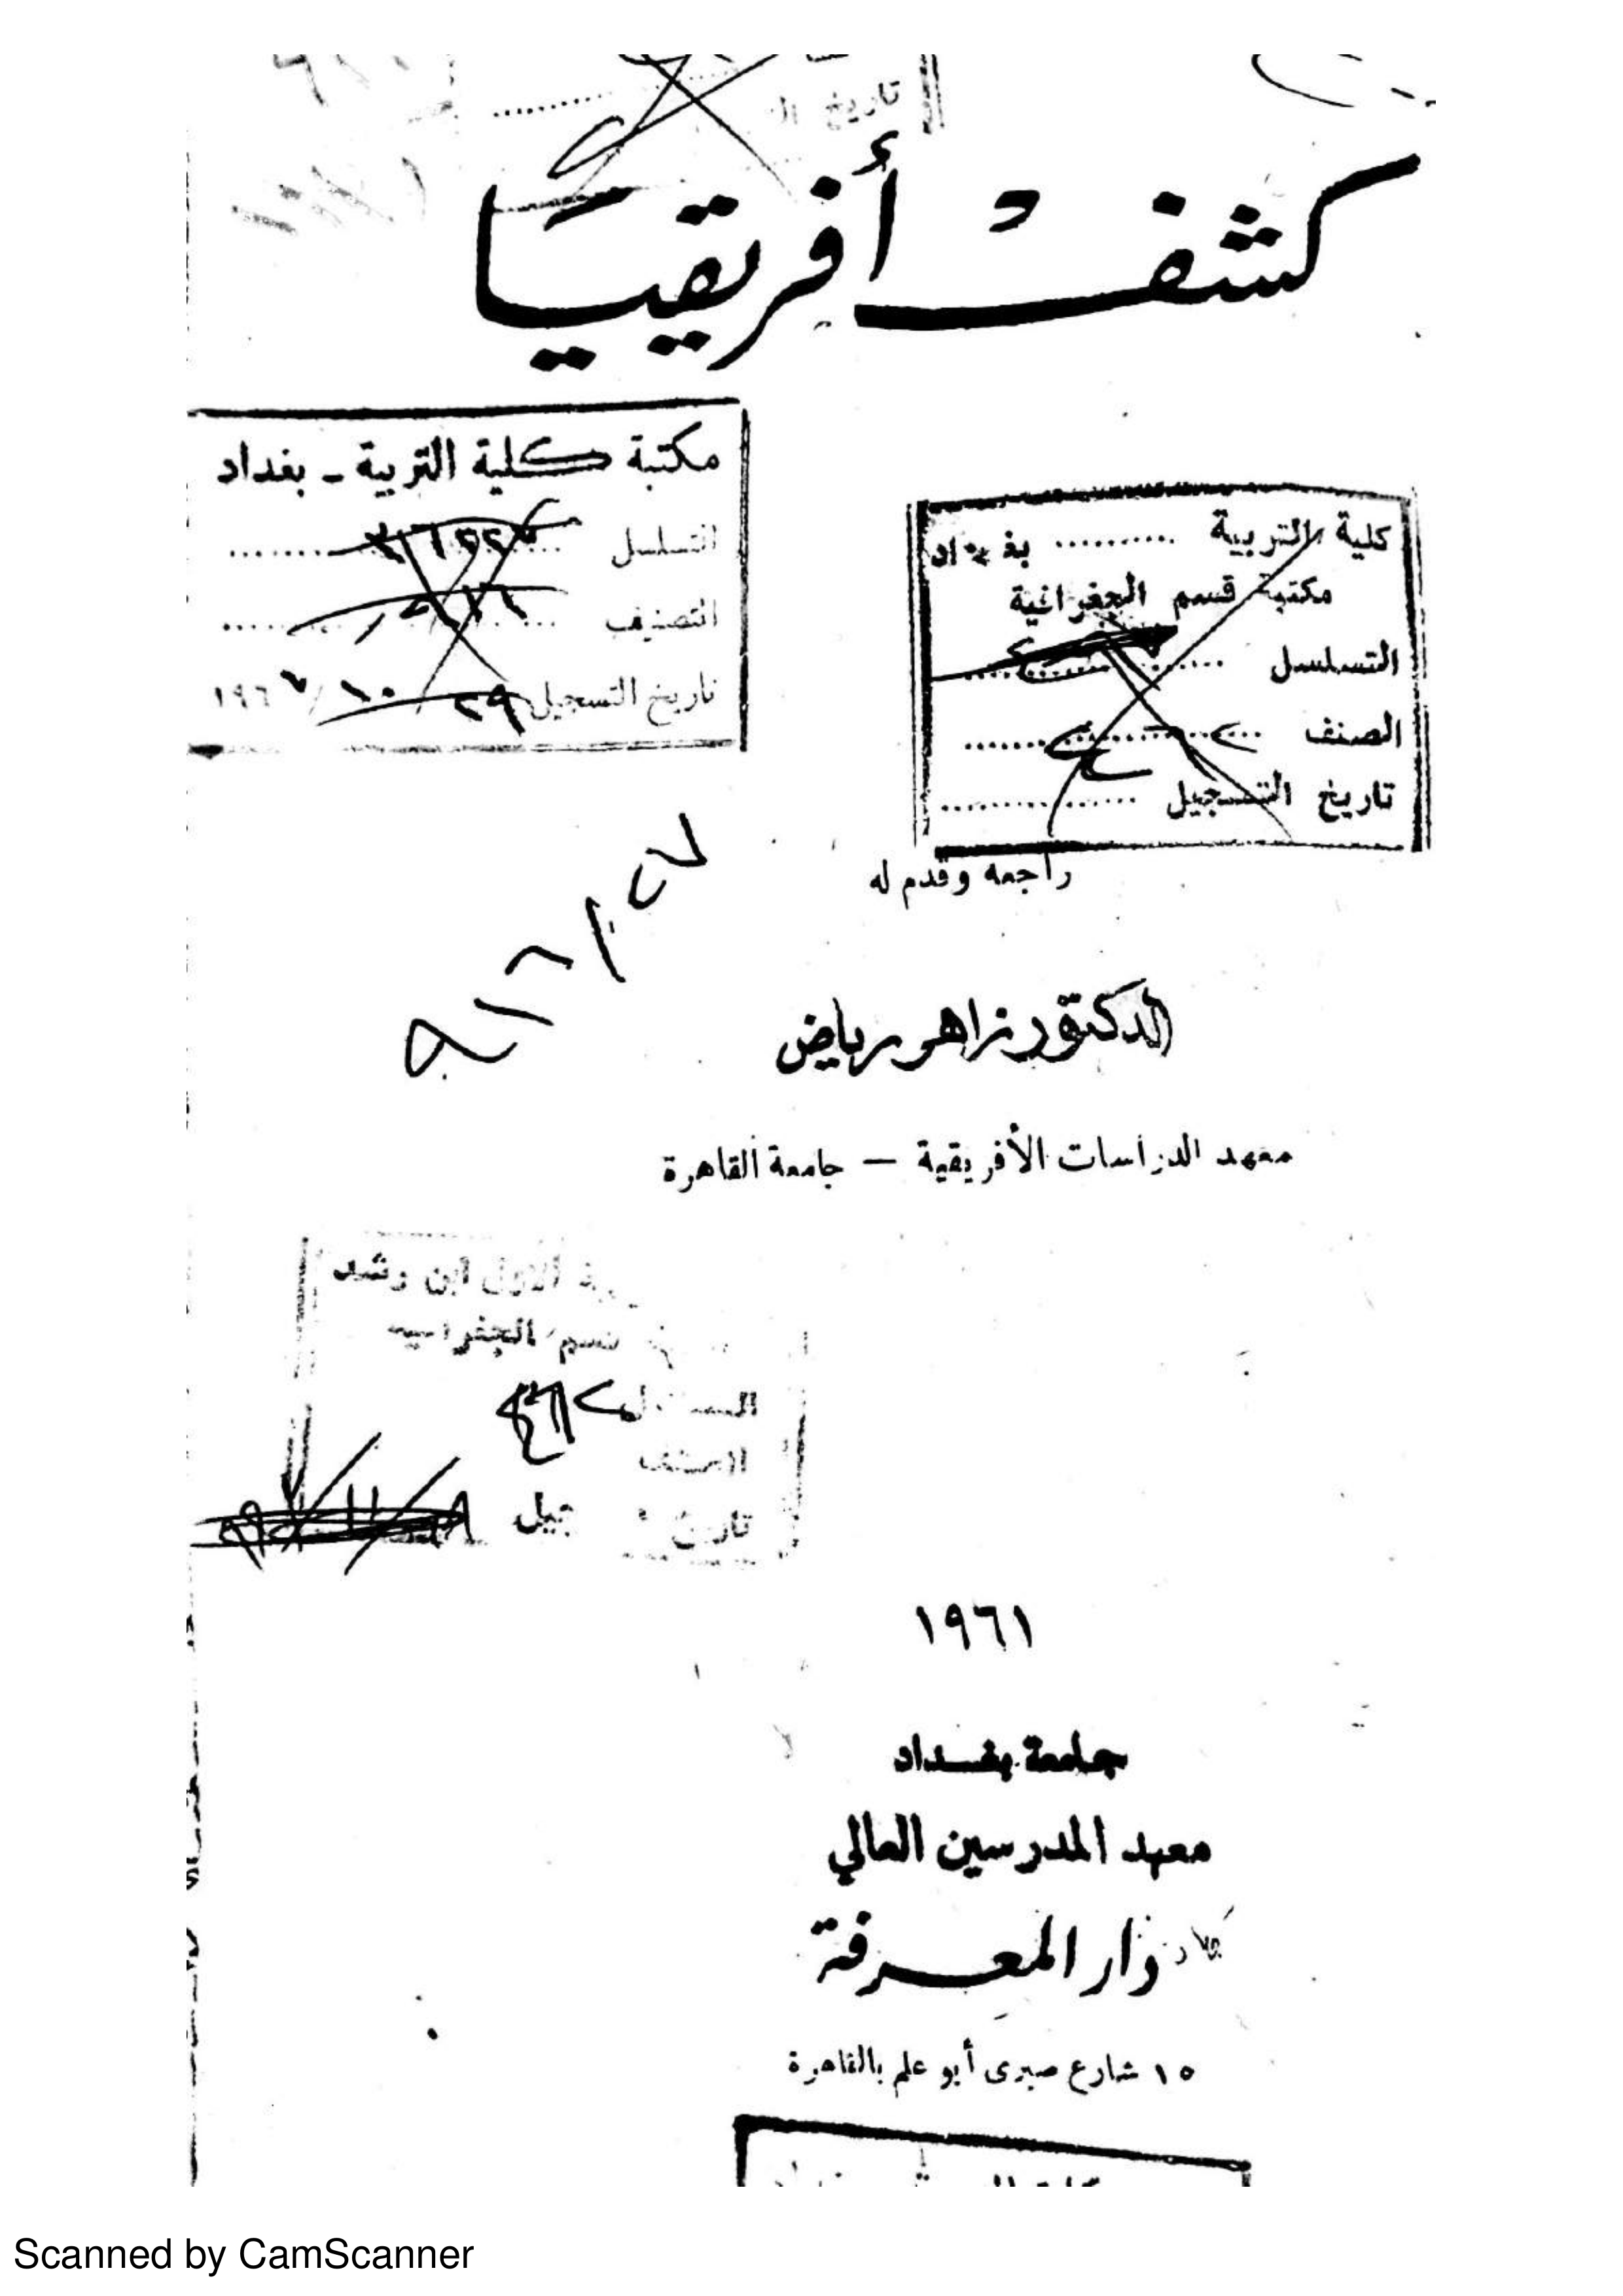 كشف أفريقيا
مكتبة كلية التربية - بغداد
التسلسل
التصنيف
تاريخ التسجيل ٢٩ / ١٠ / ١٩٦
كلية التربية .......... بغداد
مكتبة قسم الجغرافية
التسلسل
الصنف
تاريخ التسجيل
راجعه وقدم له
الدكتور زاهر رياض
معهد الدراسات الأفريقية — جامعة القاهرة
ابن رشد
قسم الجغرافيه
تاريخ
١٩٦١
جامعة بغداد
معهد المدرسين العالي
دار المعرفة
١٥ شارع صبرى أبو علم بالقاهرة
Scanned by CamScanner